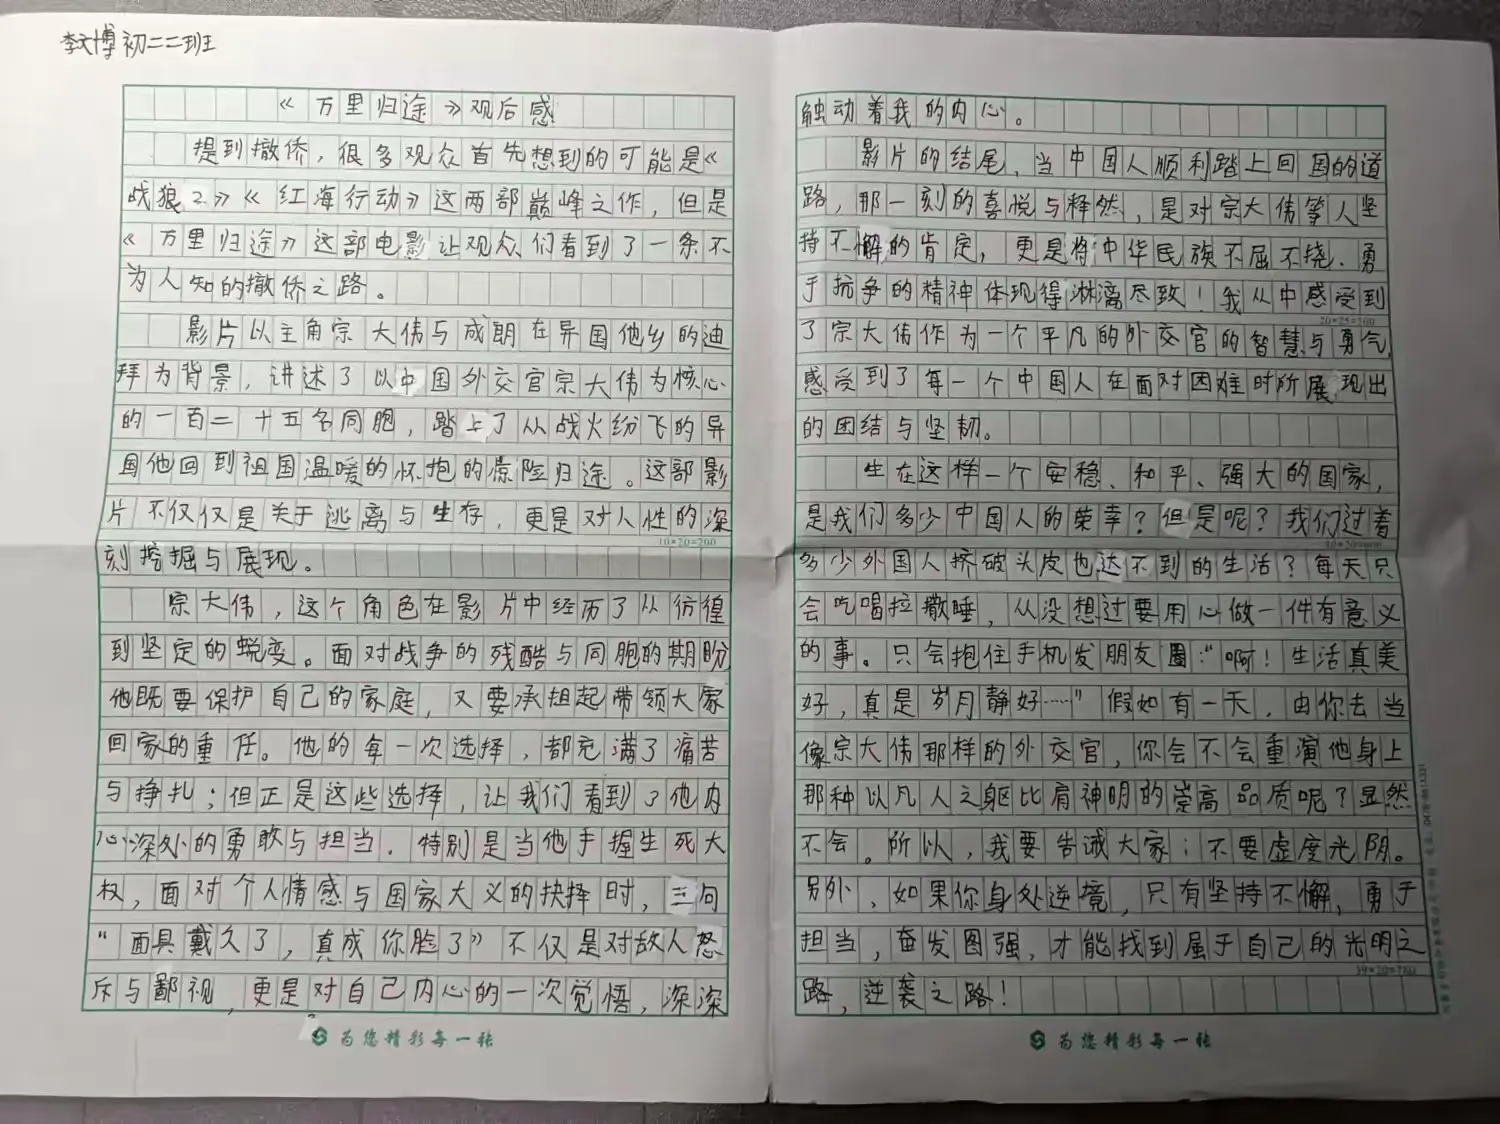 李文博 初二二班
《万里归途》观后感
提到撤侨，很多观众首先想到的可能是《
战狼2》《红海行动》这两部巅峰之作，但是
《万里归途》这部电影让观众们看到了一条不
为人知的撤侨之路。
影片以主角宗大伟与成朗在异国他乡的迪
拜为背景，讲述了以中国外交官宗大伟为核心
的一百二十五名同胞，踏上了从战火纷飞的异
国他回到祖国温暖的怀抱的惊险归途。这部影
片不仅仅是关于逃离与生存，更是对人性的深
10×20=200
刻挖掘与展现。
宗大伟，这个角色在影片中经历了从彷徨
到坚定的蜕变。面对战争的残酷与同胞的期盼
他既要保护自己的家庭，又要承担起带领大家
回家的重任。他的每一次选择，都充满了痛苦
与挣扎；但正是这些选择，让我们看到了他内
心深处的勇敢与担当．特别是当他手握生死大
权，面对个人情感与国家大义的抉择时，三句
“面具戴久了，真成你脸了”不仅是对敌人怒
斥与鄙视，更是对自己内心的一次觉悟，深深
为您精彩每一张
触动着我的内心。
影片的结尾，当中国人顺利踏上回国的道
路，那一刻的喜悦与释然，是对宗大伟等人坚
持不懈的肯定，更是将中华民族不屈不挠．勇
于抗争的精神体现得淋漓尽致！我从中感受到
20×25=500
了宗大伟作为一个平凡的外交官的智慧与勇气，
感受到了每一个中国人在面对困难时所展现出
的团结与坚韧。
生在这样一个安稳、和平、强大的国家，
是我们多少中国人的荣幸？但是呢？我们过着
多少外国人挤破头皮也达不到的生活？每天只
会吃喝拉撒睡，从没想过要用心做一件有意义
的事。只会抱住手机发朋友圈：“啊！生活真美
好，真是岁月静好……”假如有一天，由你去当
像宗大伟那样的外交官，你会不会重演他身上
那种以凡人之躯比肩神明的崇高品质呢？显然
不会。所以，我要告诫大家；不要虚度光阴。
另外，如果你身处逆境，只有坚持不懈，勇于
担当，奋发图强，才能找到属于自己的光明之
39×20=780
路，逆袭之路！
为您精彩每一张